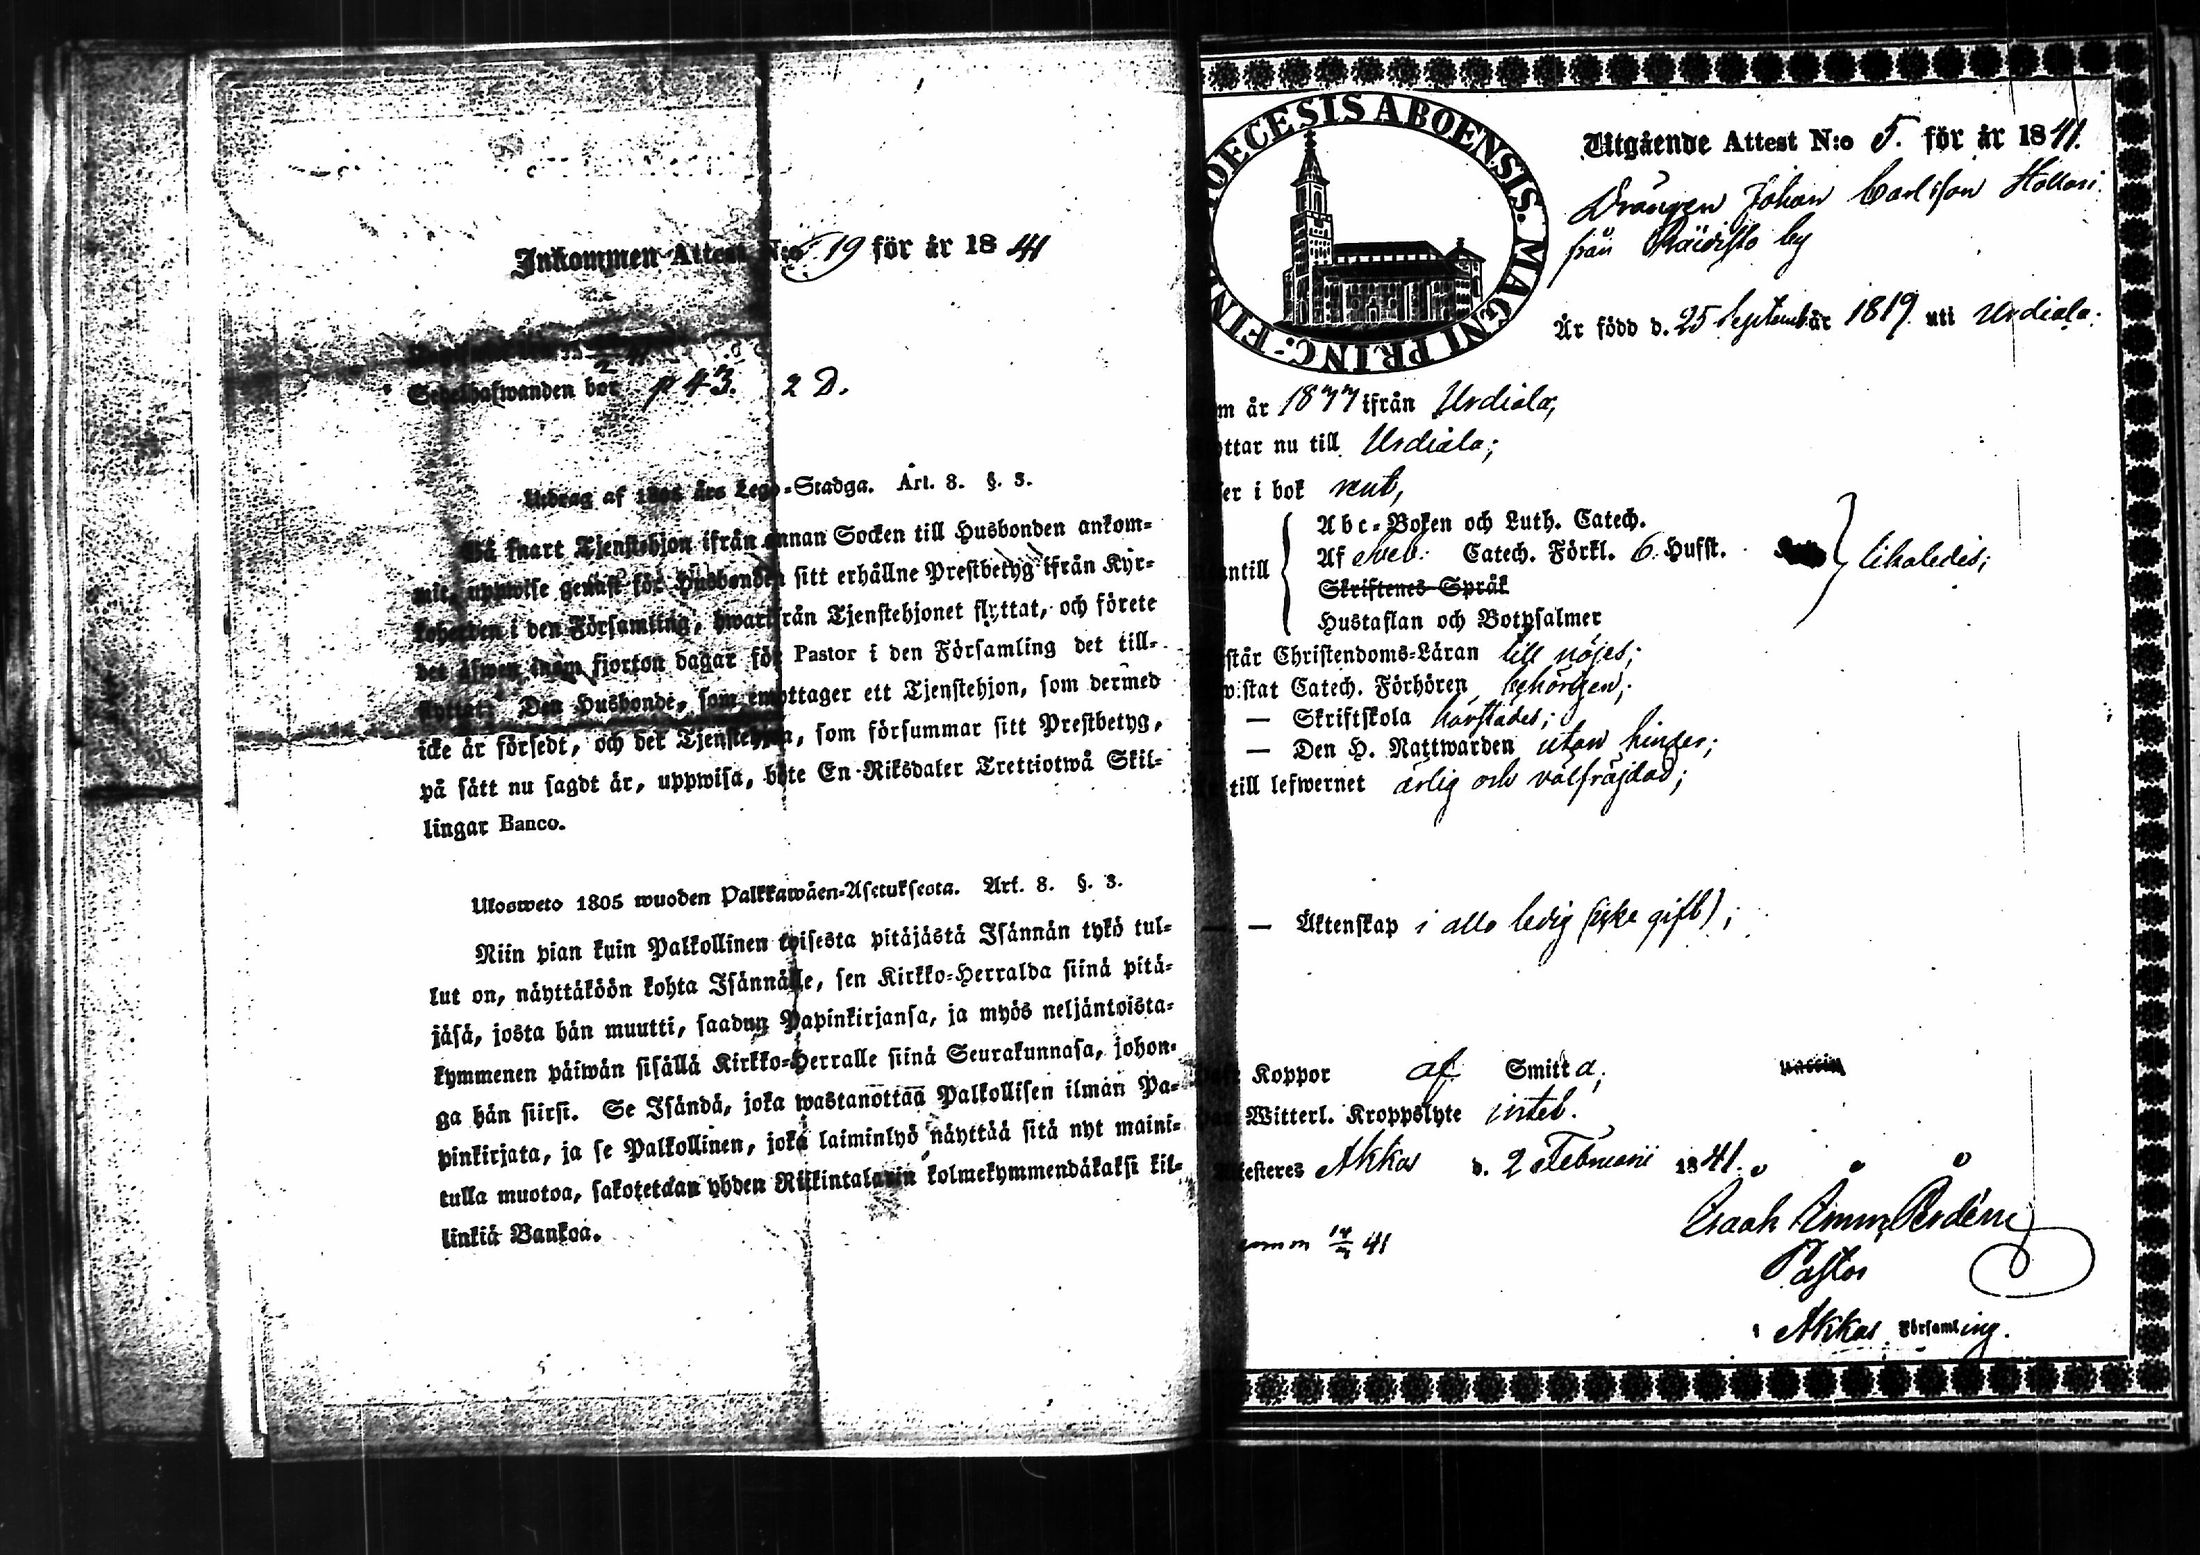 Inkommen Attest N:o 19 för år 1841
Sedelhafwanden bor p 43. 2 D.
Utdrag af 1805 års Lego-Stadga. Art. 8. §. 3.
Så snart Tjenstehjon ifrån annan Socken till Husbonden ankom-
mit, uppwise genast för Husbonden sitt erhållne Prestbetyg ifrån Kyr-
koherden i den Församling, hwarifrån Tjenstehjonet flyttat, och förete
det äfwen inom fjorton dagar för Pastor i den Församling det till-
flyttat. Den Husbonde, som emottager ett Tjenstehjon, som dermed
icke är försedt, och det Tjenstehjon, som försummar sitt Prestbetyg,
på sätt nu sagdt är, uppwisa, böte En Riksdaler Trettiotwå Skil-
lingar Banco.
Ulosweto 1805 wuoden Palkkawäen-Asetuksesta. Art. 8. §. 3.
Niin pian kuin Palkollinen toisesta pitäjästä Isännän tykö tul-
lut on, näyttäköön kohta Isännälle, sen Kirkko-Herralda siinä pitä-
jäsä, josta hän muutti, saadun Papinkirjansa, ja myös neljäntoista-
kymmenen päiwän sisällä Kirkko-Herralle siinä Seurakunnasa, johon-
ga hän siirsi. Se Isändä, joka wastanottaa Palkollisen ilman Pa-
pinkirjata, ja se Palkollinen, joka laiminlyö näyttää sitä nyt maini-
tulla muotoa, sakotetaan yhden Riikintalarin kolmekymmendäkaksi kil-
linkiä Bankoa.
DIOECESIS ABOENSIS. MAGNI PRINC. FIN
Utgående Attest N:o 5. för år 1841.
Drängen Johan Carlsson
från by
Är född d. 25 September 1819 uti Urdiala.
m år ifrån Urdiala,
ttar nu till Urdiala;
er i bok rent,
Abc-Boken och Luth. Catech.
ntill Af Sveb. Catech. Förkl. 6. Hufst. likaledes;
Skriftenes Språk
Hustaflan och Botpsalmer
står Christendoms-Läran till nöjes;
wistat Catech. Förhören behörigen;
— Skriftskola härstädes;
— Den H. Nattwarden utan hinder;
till lefwernet ärlig och välfräjdad;
— — Äktenskap i allo ledig (icke gift);
Koppor af Smitta;
Witterl. Kroppslyte intet.
esteres Akkas d. 2 Februarii 1841.
Isaak Emm.
Pastor
i Akkas Församling.
41